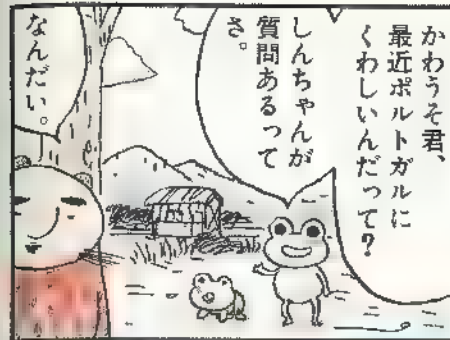 かわうそ君、
最近ポルトガルに
くわしいんだって?
しんちゃんが
質問あるって
さ。
なんだい。